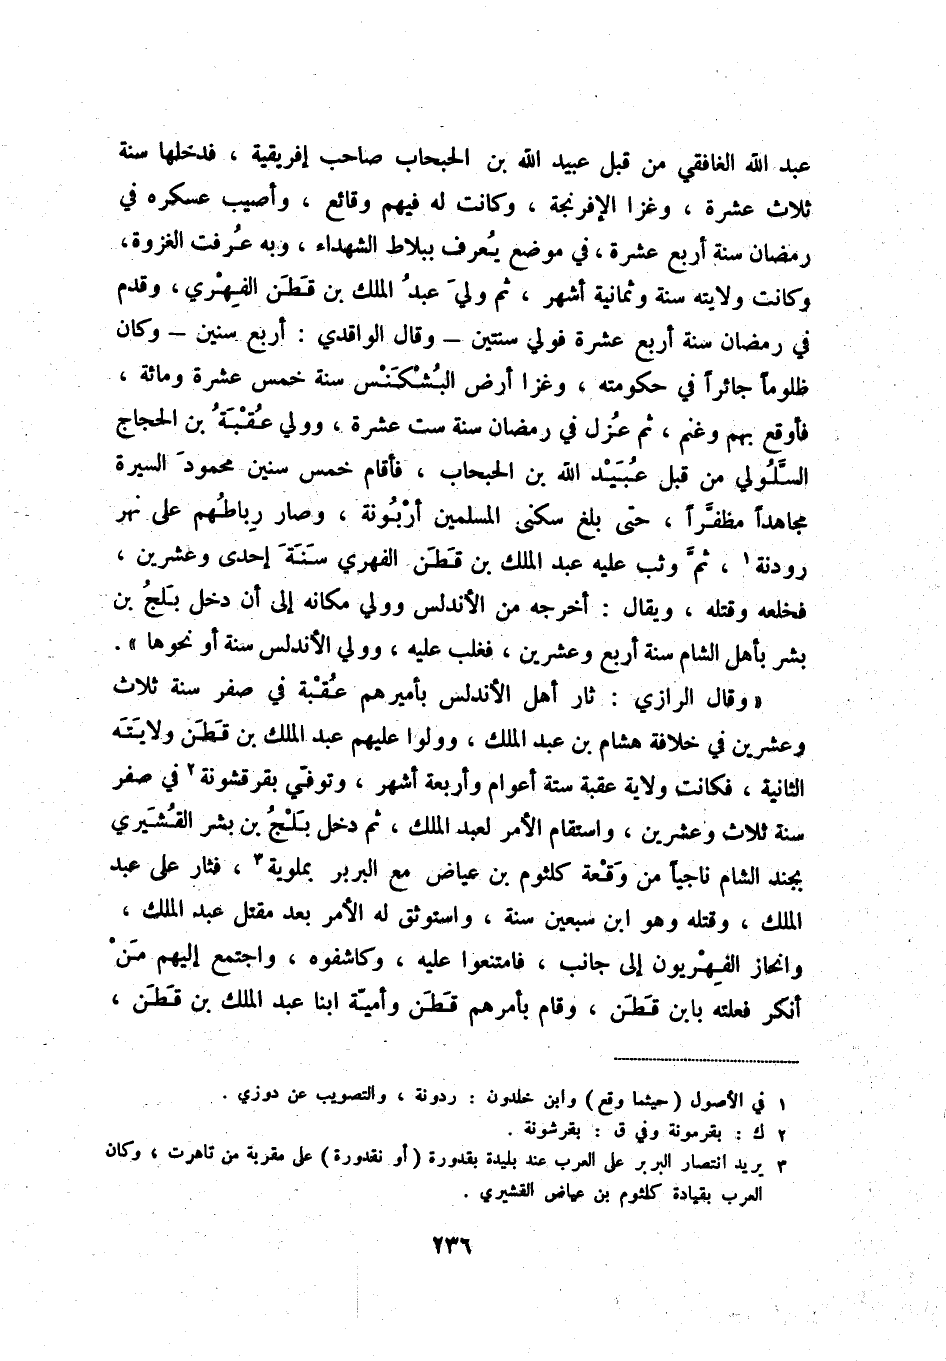 عبد الله الغافقي من قبل عبيد الله بن الحبحاب صاحب إفريقية ، فدخلها سنة
ثلاث عشرة ، وغزا الإفرنجة ، وكانت له فيهم وقائع ، وأصيب عسكره في
رمضان سنة أربع عشرة ، في موضع يُعرف ببلاط الشهداء ، وبه عُرفت الغزوة،
وكانت ولايته سنة وثمانية أشهر ، ثم وليَ عبدُ الملك بن قَطَن الفِهْري ، وقدم
في رمضان سنة أربع عشرة فولي سنتين – وقال الواقدي : أربع سنين – وكان
ظلوماً جائراً في حكومته ، وغزا أرض البُشْكَنْس سنة خمس عشرة ومائة ،
فأوقع بهم وغنم ، ثم عُزل في رمضان سنة ست عشرة ، وولي عُقْبَةُ بن الحجاج
السَّلُولي من قبل عُبَيْد الله بن الحبحاب ، فأقام خمس سنين محمودَ السيرة
مجاهداً مظفَّراً ، حتى بلغ سكنى المسلمين أرْبُونة ، وصار رِباطُهم على نهر
رودنة ١ ، ثمَّ وثب عليه عبد الملك بن قَطَن الفهري سَنَةَ إحدى وعشرين ،
فخلعه وقتله ، ويقال : أخرجه من الأندلس وولي مكانه إلى أن دخل بَلجُ بن
بشر بأهل الشام سنة أربع وعشرين ، فغلب عليه ، وولي الأندلس سنة أو نحوها » .
« وقال الرازي : ثار أهل الأندلس بأميرهم عُقْبة في صفر سنة ثلاث
وعشرين في خلافة هشام بن عبد الملك ، وولوا عليهم عبد الملك بن قَطَن ولايَتَه
الثانية ، فكانت ولاية عقبة ستة أعوام وأربعة أشهر ، وتوفّي بقرقشونة ٢ في صفر
سنة ثلاث وعشرين ، واستقام الأمر لعبد الملك ، ثم دخل بَلْجُ بن بشر القُشَيري
بجند الشام ناجياً من وَقْعة كلثوم بن عياض مع البربر بملوية ٣ ، فثار على عبد
الملك ، وقتله وهو ابن سبعين سنة ، واستوثق له الأمر بعد مقتل عبد الملك ،
وانحاز الفِهْريون إلى جانب ، فامتنعوا عليه ، وكاشفوه ، واجتمع إليهم مَنْ
أنكر فعلته بابن قَطَن ، وقام بأمرهم قَطَن وأميّة ابنا عبد الملك بن قَطَن ،
١ في الأصول ( حيثما وقع ) وابن خلدون : ردونة ، والتصويب عن دوزي .
٢ ك : بقرمونة وفي ق : بقرشونة .
٣ يريد انتصار البربر على العرب عند بليدة بقدورة ( أو نقدورة ) على مقربة من تاهرت ، وكان
العرب بقيادة كلثوم بن عياض القشيري .
٢٣٦